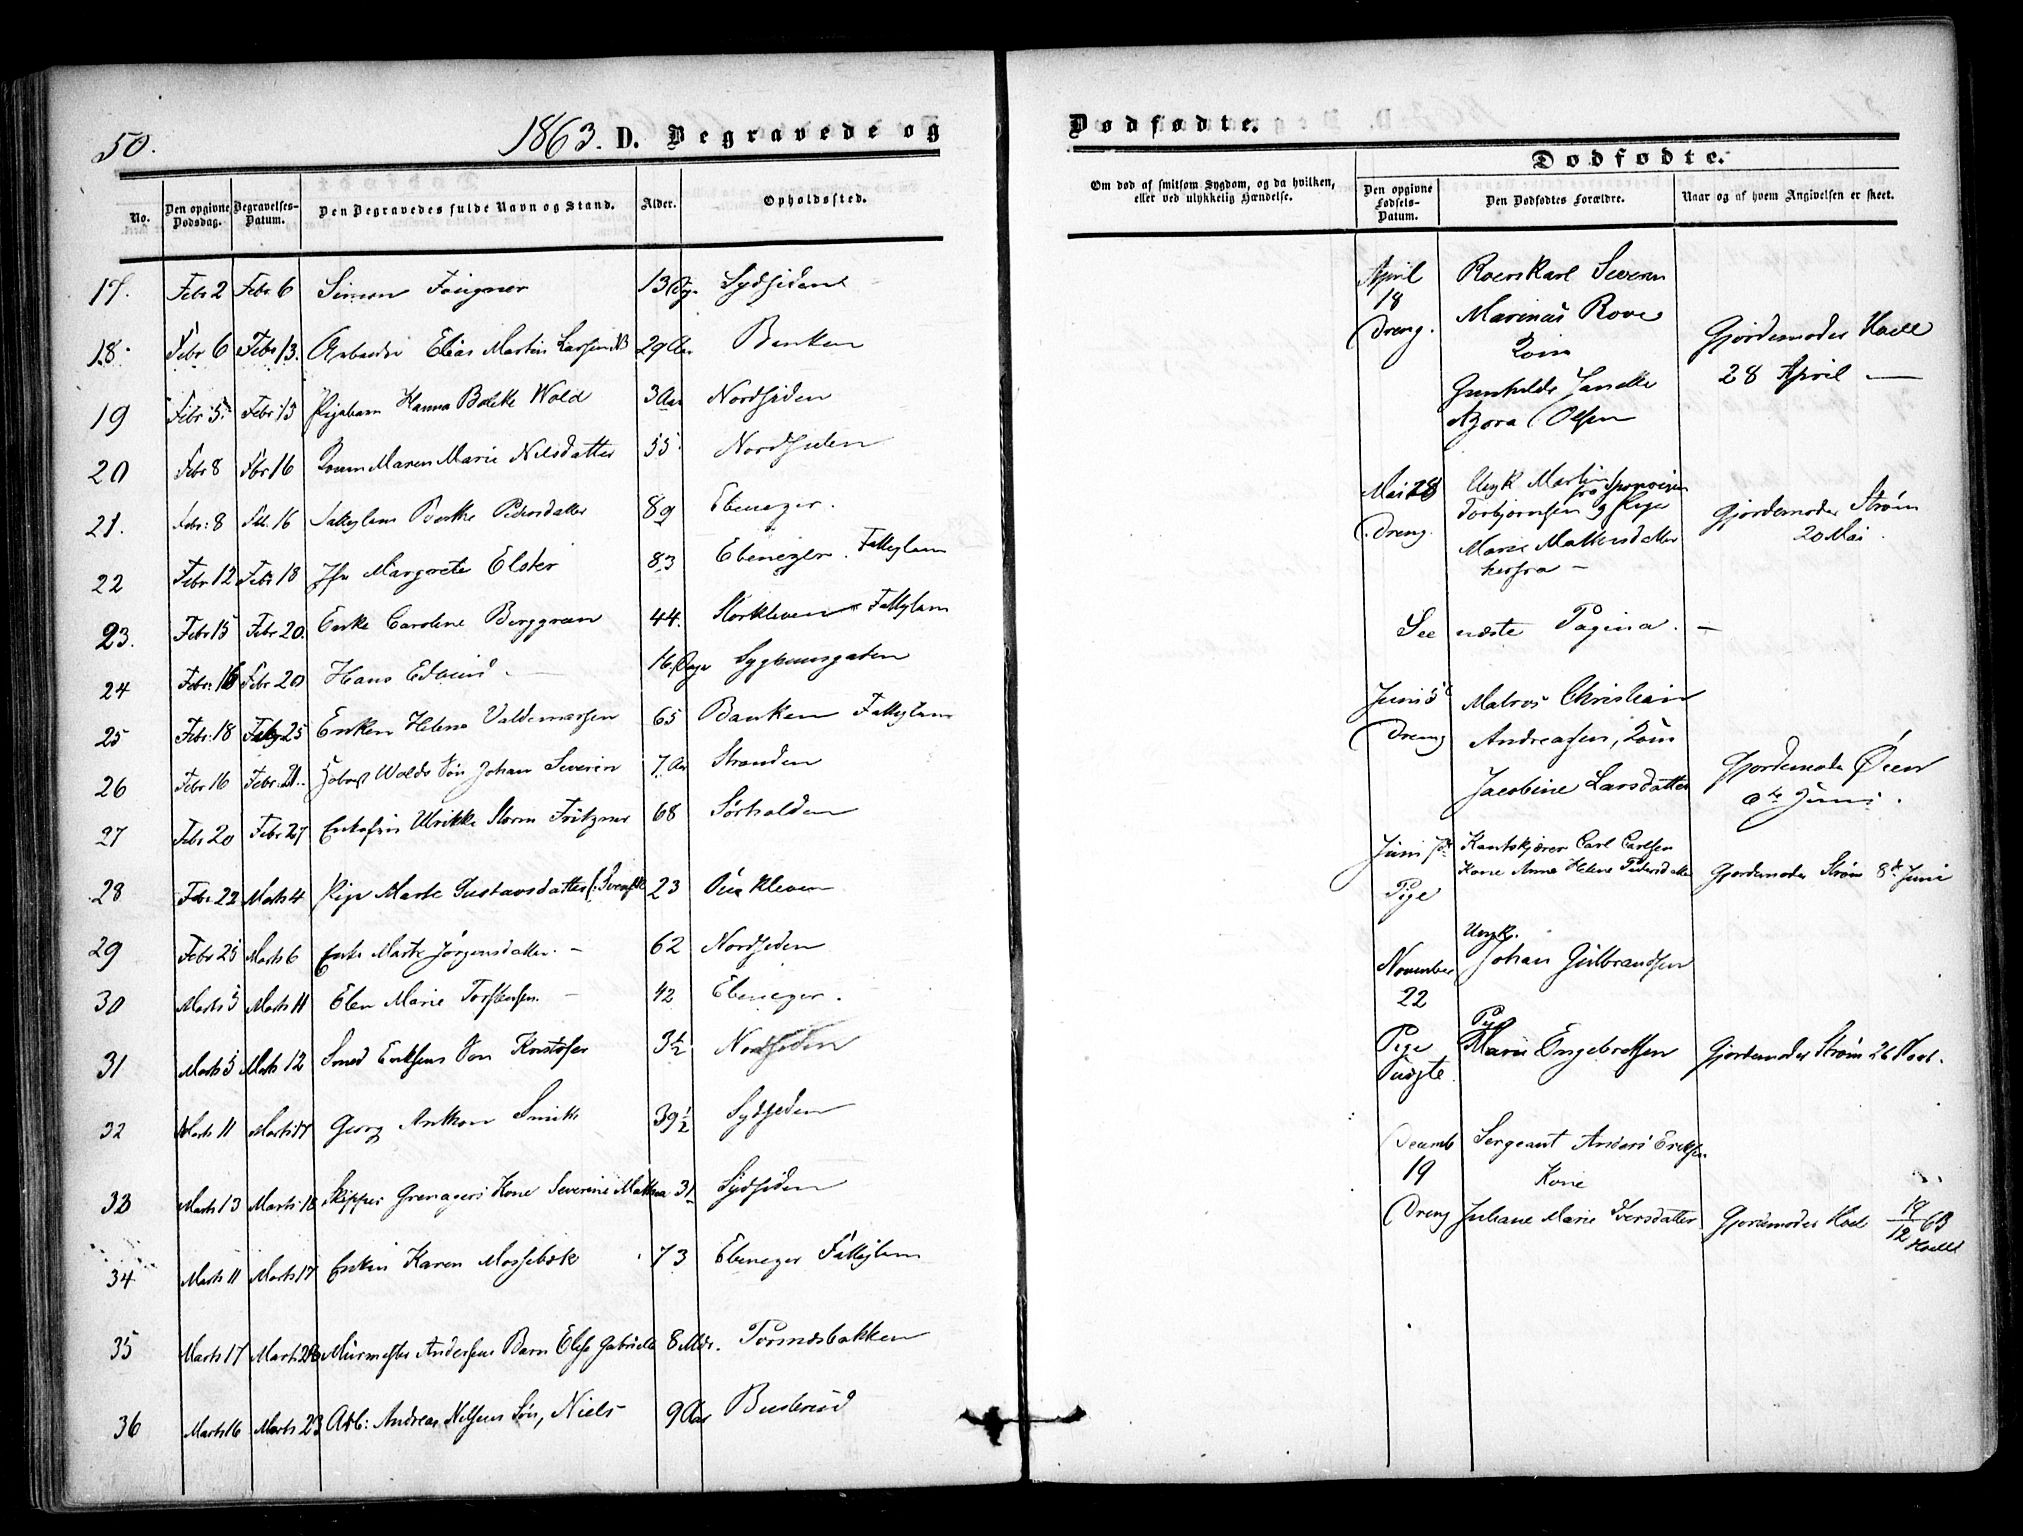 50. 1863. D. Begravede og
No. Den opgivne Dødsdag. Begravelses-Datum. Den Begravedes fulde Navn og Stand. Alder. Opholdssted.
17. Febr 2 Febr 6 Simon 13 Dg. Sydsiden
18. Febr 6 Febr 13. Elias Martin Larsen 29 Aar Banken
19 Febr 5. Febr 13 Pigebarn Hanna Wold 3 Aar Nordsiden
20 Febr 8 Fbr 16 Maren Marie Nilsdatter 55. Nordsiden
21. Febr: 8 16 Pedersdatter 89 Ebenezer.
22 Febr 12 Febr 18 Jfr Margrete Elster 83 Ebenezer. Fattiglem
23. Febr 15 Febr 20. Enke Caroline Berggren 44. Storkleven Fattiglem
24 Febr: 16 Febr 20 Hans Edvin. 16. Dage Syghuusgaten
25 Febr: 18 25 Enken Helene Valdemarsen 65 Banken Fattiglem
26 Febr 16 Febr 21. Wolds Søn Johan Severin 7 Aar Stranden
27 Febr 20 Febr 27 Ulrikke Storm Fritzner 68 Sørhalden
28 Febr 22 Marts 4 Pige Marte Gustavsdatter (Svensk) 23 kleven
29 Febr 25 Marts 6 Enke Marte Jørgensdatter. 62 Nordsiden
30 Marts 5 Marts 11 Elen Marie Torstensen. 42 Ebenezer.
31 Marts 5 Marts 12 Smed Eriksens Søn Kristofer 3 1/2 Nordsiden
32 Marts 11 Marts 17 Georg Anthon Smith 39 1/2 Sydsiden
33 Marts 13 Marts 18 Skipper Grenagers Kone Severine Mathea 31 Sydsiden
34 Marts 11 Marts 17 Enken Karen Mossebæk 73 Ebenezer Fattiglem
35 Marts 17 Marts 23 Muurmester Andersens Barn Elise Gabrielle 8 Mdr. Tornæsbakken
36 Marts 16 Marts 23 Arb: Andreas Nilsens Søn, Niels 9 Aar Buskerud
Dødfødte.
Dødfødte.
Om død af smitsom Sygdom, og da hvilken, eller ved ulykkelig Hændelse. Den opgivne Fødsels-Datum. Den Dødfødtes Forældre. Naar og af hvem Angivelsen er skeet.
April Roerskarl Severin
18 Marinus Rove
Dreng. Kone Gjordemoder Hoell
Gunhilde 28 April —
Olsen
Mai 18 Ungk Martin
Torbjørnsen og Pige fra
Dreng. Marie Mathisdatter Gjordemoder Strøm
herfra — 20 Mai.
See næste Pagina. —
Juni 5 Matros Christian
Dreng Andreassen, Kone
Jacobine Larsdatter Gjordemoder Øien
Juni.
Juni Kone Carl Carlsen
Kone Anne Helene Pedersdatter Gjordemoder Strøm 8de Juni
Pige
Ungk.
November Johan Gulbrandsen
22
Pige Pige
Marie Engebretsen Gjordemoder Strøm 26 Novb.
Uægte.
Decemb Sergeant Anders Eriksen
19 Kone
Dreng Juliane Marie Iversdatter Gjordemoder Hoel 19/12 63
Hoell